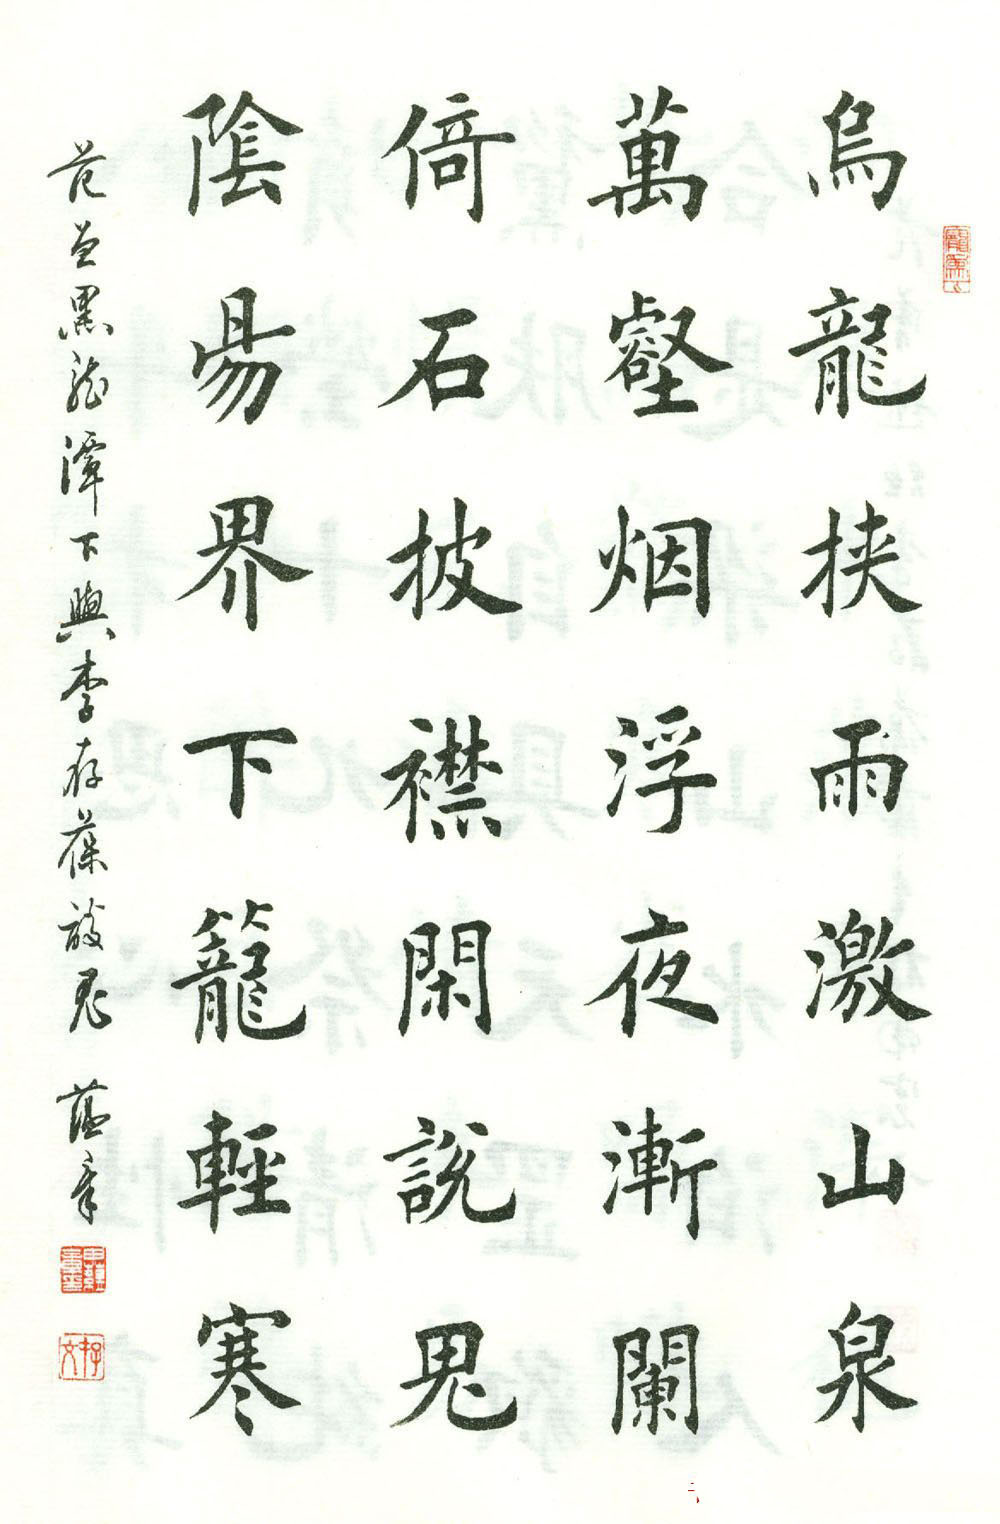 烏龍挟雨激山泉
萬壑烟浮夜漸闌
倚石披襟閑説鬼
陰昜界下籠輕寒
范曾黑龍潭下與李存葆談鬼 蘊章